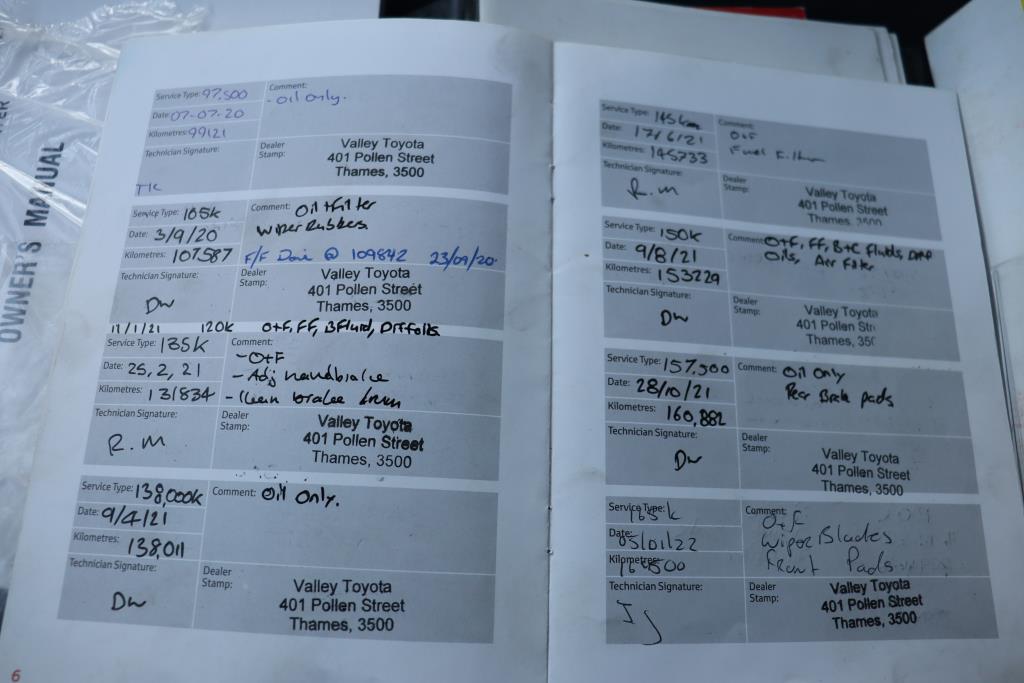 OWNER'S MANUAL
Service Type: 97.500
Comment:
- oil only.
Date: 07-07-20
Kilometres: 99121
Technician Signature:
Dealer
Stamp:
Valley Toyota
401 Pollen Street
Thames, 3500
Service Type: 105k
Comment: Oil + Filter
Wiper Rubbers
Date: 3/9/20
Kilometres: 107587
F/F Done @ 109842 23/09/20
Technician Signature:
Dw
Dealer
Stamp:
Valley Toyota
401 Pollen Street
Thames, 3500
11/1/21 120k O+F, FF, BFluid, Diff oils
Service Type: 135k
Comment:
- O+F
Date: 25, 2, 21
- Adj handbrake
Kilometres: 131834
- Clean brake
Technician Signature:
R.M
Dealer
Stamp:
Valley Toyota
401 Pollen Street
Thames, 3500
Service Type: 138,000k
Comment: Oil Only.
Date: 9/4/21
Kilometres: 138,011
Technician Signature:
Dw
Dealer
Stamp:
Valley Toyota
401 Pollen Street
Thames, 3500
6
Service Type: 145km
Comment:
Date: 17/6/21
O+F
Kilometres: 145733
Fuel Filter
Technician Signature:
R.M
Dealer
Stamp:
Valley Toyota
401 Pollen Street
Thames, 3500
Service Type: 150k
Comment: O+F, FF, B+C Fluids, Diff
Oils, Air Filter
Date: 9/8/21
Kilometres: 153229
Technician Signature:
Dw
Dealer
Stamp:
Valley Toyota
401 Pollen Str
Thames, 350
Service Type: 157,500
Comment: Oil Only
Rear Brake pads
Date: 28/10/21
Kilometres: 160,882
Technician Signature:
Dw
Dealer
Stamp:
Valley Toyota
401 Pollen Street
Thames, 3500
Service Type: 165k
Comment:
O+F
Date: 05/01/22
Wiper Blades
Kilometres:
Front Pads
Technician Signature:
JJ
Dealer
Stamp:
Valley Toyota
401 Pollen Street
Thames, 3500